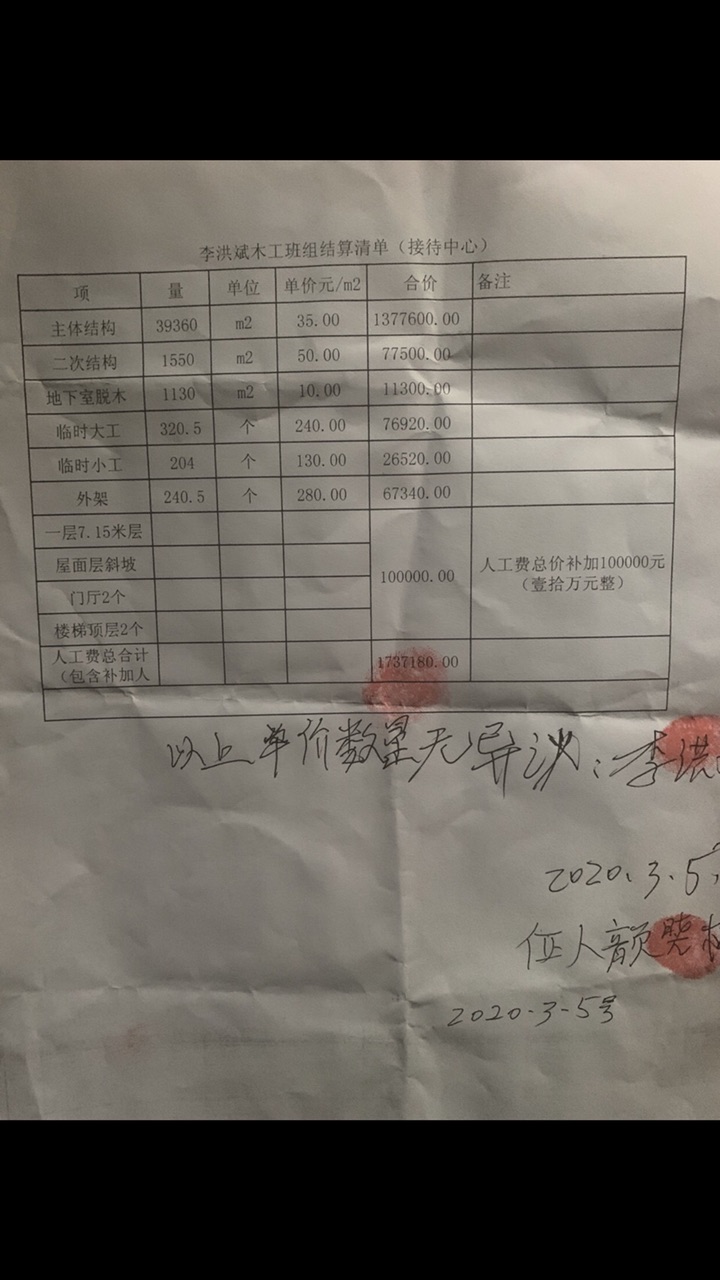 李洪斌木工班组结算清单（接待中心）
项 量 单位 单价元/m2 合价 备注
主体结构 39360 m2 35.00 1377600.00
二次结构 1550 m2 50.00 77500.00
地下室脱木 1130 m2 10.00 11300.00
临时大工 320.5 个 240.00 76920.00
临时小工 204 个 130.00 26520.00
外架 240.5 个 280.00 67340.00
一层7.15米层
屋面层斜坡
门厅2个
楼梯顶层2个
100000.00
人工费总价补加100000元
（壹拾万元整）
人工费总合计
（包含补加人
1737180.00
以上单价数量无异议：李洪
2020.3.5
证人颜晓
2020-3-5号